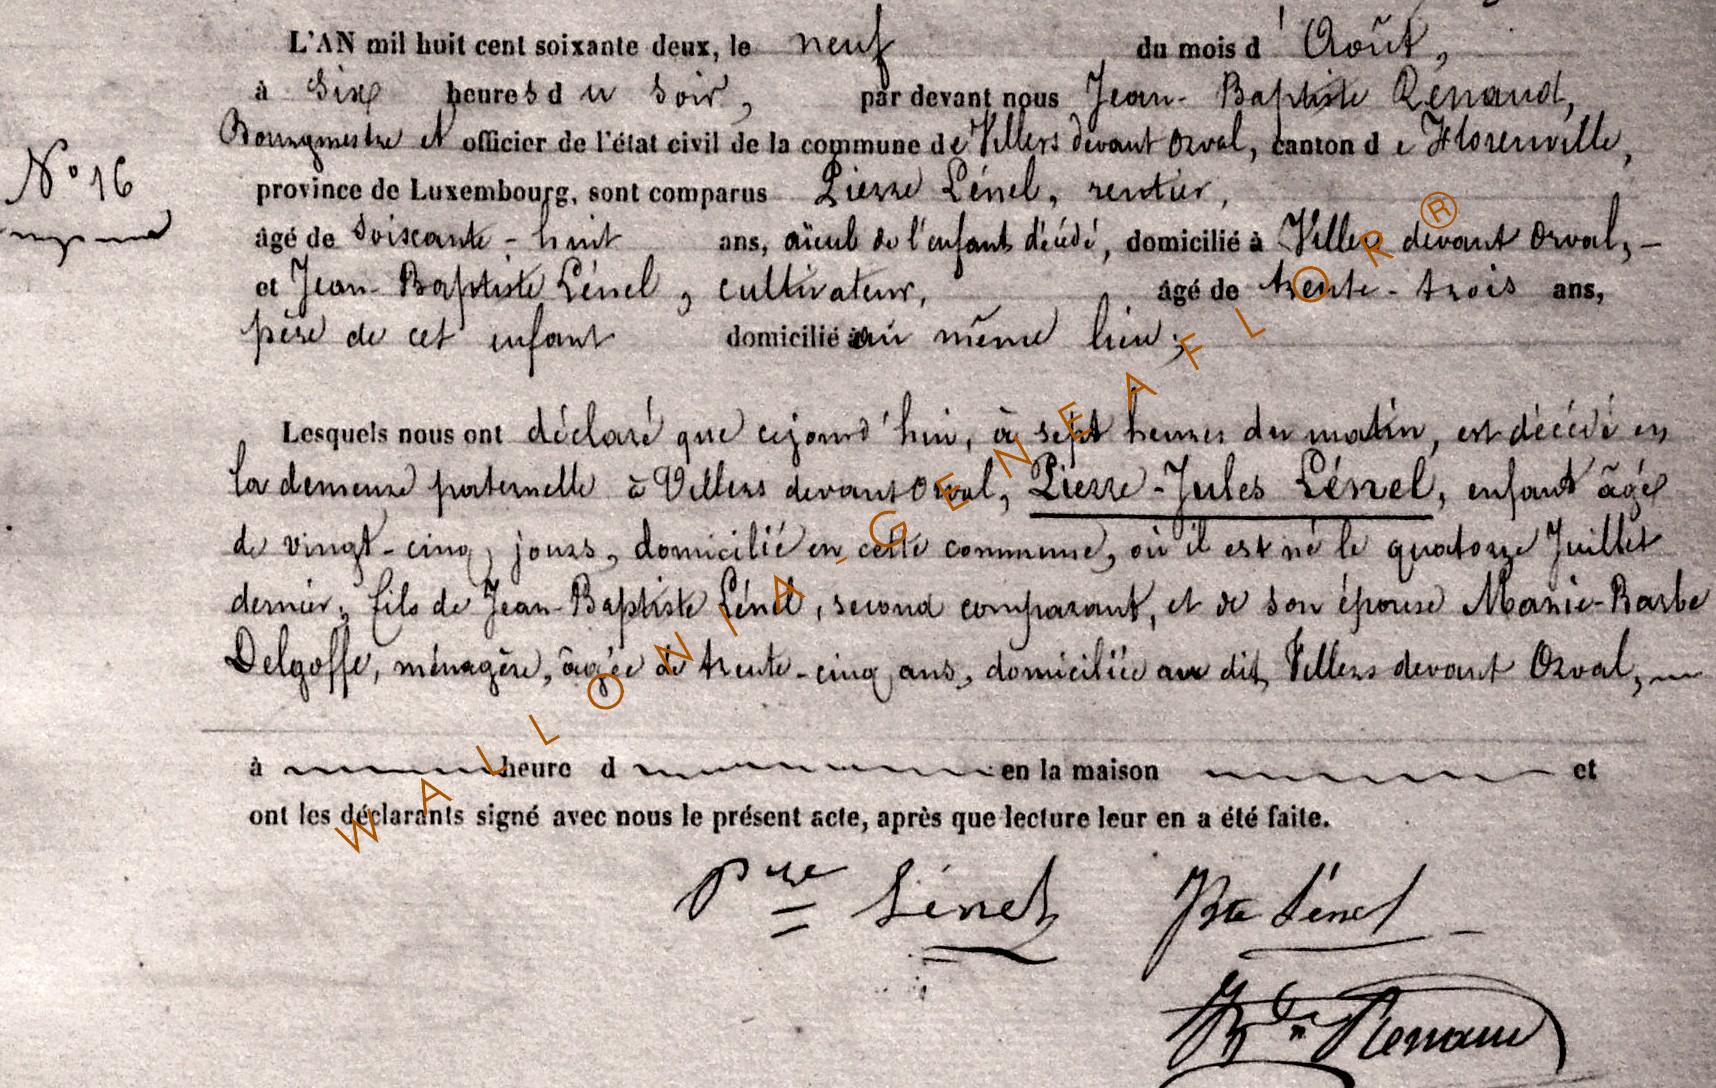 L'AN mil huit cent soixante deux, le neuf du mois d'Août,
à six heures du soir, par devant nous Jean-Baptiste Renaud,
Bourgmestre et officier de l'état civil de la commune de Villers devant Orval, canton de Florenville,
N° 16
province de Luxembourg, sont comparus Pierre Lénel, rentier,
âgé de soixante-huit ans, aïeul de l'enfant décédé, domicilié à Villers devant Orval,
et Jean-Baptiste Lénel, cultivateur, âgé de trente-trois ans,
père de cet enfant domicilié au même lieu;
Lesquels nous ont déclaré que cejourd'hui, à sept heures du matin, est décédé en
la demeure paternelle à Villers devant Orval, Pierre-Jules Lénel, enfant âgé
de vingt-cinq jours, domicilié en cette commune, où il est né le quatorze Juillet
dernier, fils de Jean-Baptiste Lénel, second comparant, et de son épouse Marie-Barbe
Delgoffe, ménagère, âgée de trente-cinq ans, domiciliée au dit Villers devant Orval,
à heure d en la maison et
ont les déclarants signé avec nous le présent acte, après que lecture leur en a été faite.
Pre Lénel JBte Lénel
JBte Renaud
WALLONIA-GENEAFLOR®